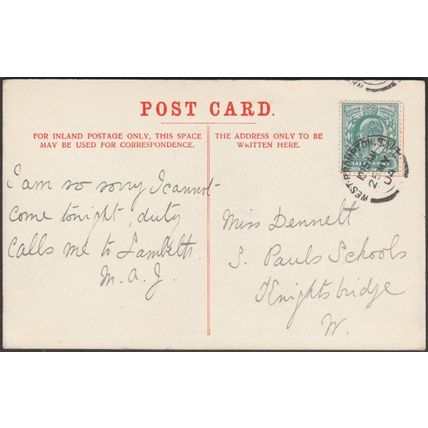 POST CARD.
FOR INLAND POSTAGE ONLY, THIS SPACE
MAY BE USED FOR CORRESPONDENCE.
THE ADDRESS ONLY TO BE
WRITTEN HERE.
I am so sorry I cannot
come tonight, duty
calls me to Lambeth.
M. A. J.
Miss Dennett
S. Pauls Schools
Knightsbridge
W.
WEST BROMPTON. S.W.